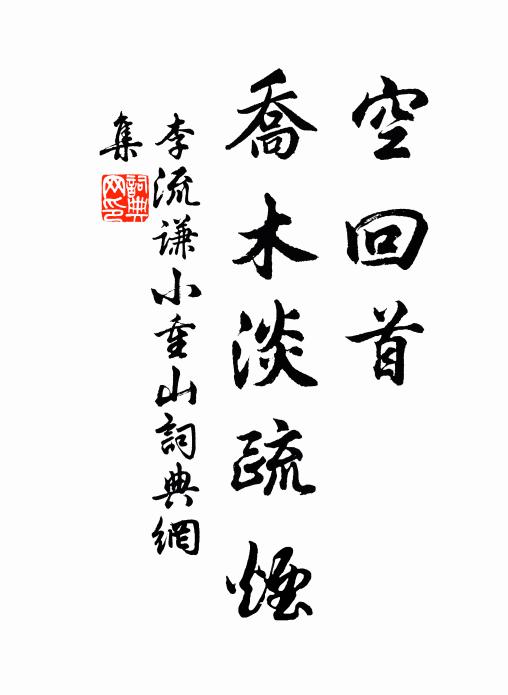 空回首
喬木淡疏煙
李流谦小重山詞典網
集
詞典网印